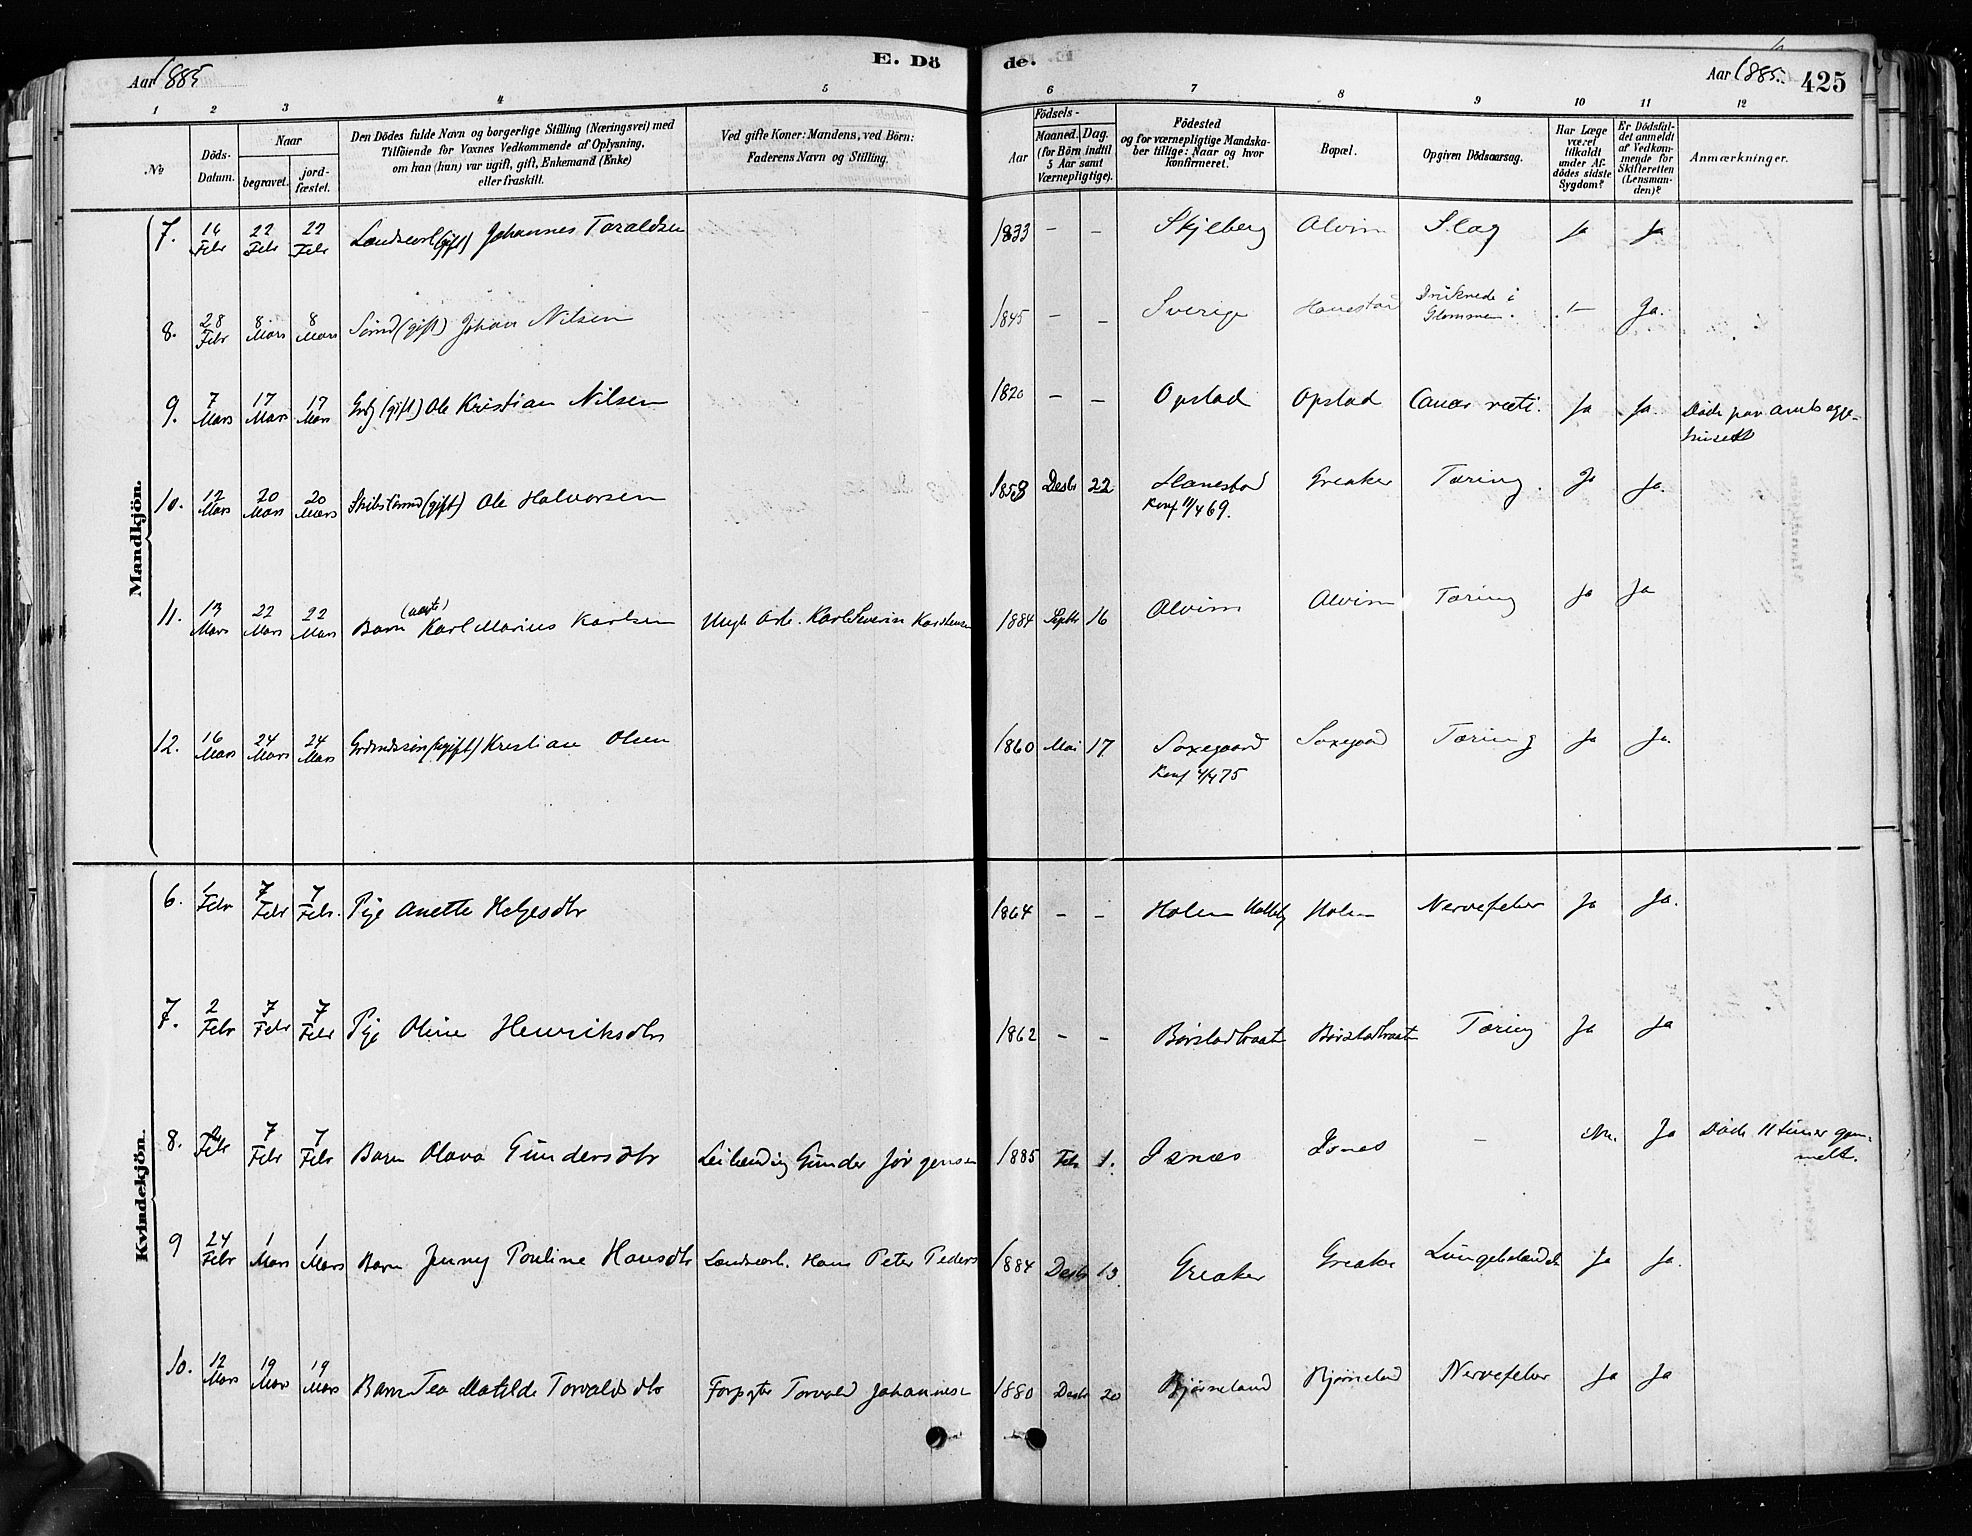 Aar 1885
E. Dö
de.
Aar 1885.
425
1 2 3 4 5 6 7 8 9 10 11 12
No
Döds-Datum.
Naar
begravet.
jord-fæstet.
Den Dödes fulde Navn og borgerlige Stilling (Næringsvei) med
Tilföiende for Voxnes Vedkommende af Oplysning,
om han (hun) var ugift, gift, Enkemand (Enke)
eller fraskilt.
Ved gifte Koner: Mandens, ved Börn:
Faderens Navn og Stilling.
Födsels-
Aar
Maaned. Dag.
(for Börn indtil
5 Aar samt
Værnepligtige).
Födested
og for værnepligtige Mandska-
ber tillige: Naar og hvor
konfirmeret.
Bopæl.
Opgiven Dödsaarsag.
Har Læge
været
tilkaldt
under Af-
dödes sidste
Sygdom?
Er Dödsfal-
det anmeldt
af Vedkom-
mende for
Skifteretten
(Lensman-
den)?
Anmærkninger.
Mandkjön.
7. 16 Febr 22 Febr 22 Febr (gift) Johannes Taraldsen 1833 – – Skjeberg Alvim Slag Ja Ja
8. 28 Febr 8 Mars 8 Mars (gift) Johan Nilsen 1845 – – Sverige Hanestad Druknede i Glommen. – Ja.
9. 7 Mars 17 Mars 17 Mars (gift) Ole Kristian Nilsen 1820 – – Opstad Opstad Ja Ja. Döde paa amtssyge-
huset
10. 12 Mars 20 Mars 20 Mars (gift) Ole Halvorsen 1853 Desbr 22 Hanestad Greaker Tæring. Ja Ja.
Konf 11/4 69.
11. 13 Mars 22 Mars 22 Mars Barn Karl Marius Karlsen Arb. Karl Severin Karstensen 1884 Septbr 16 Alvim Alvim Tæring Ja Ja
12. 16 Mars 24 Mars 24 Mars (ugift) Kristian Olsen 1860 Mai 17 Saxegaard Saxegaard Tæring Ja Ja.
Konf 4/4 75
Kvindekjön.
6. 1 Febr 7 Febr 7 Febr. Pige Anette Helgesdtr 1864 – – Holen Holen Nervefeber Ja Ja.
7. 2 Febr 7 Febr 7 Febr Pige Oline Henriksdtr 1862 – – Börstadbraaten Börstadbraaten Tæring Ja Ja
8. Febr 7 Febr 7 Febr Barn Olava Gundersdtr Leilænding Gunder Jörgensen 1885 Febr 1. Isnæs Isnes – Nei. Ja Döde 11 timer gam-
melt.
9 24 Febr 1 Mars 1 Mars Barn Jenny Pouline Hansdtr Landarb. Hans Peter Peders 1884 Desbr 13 Greaker Greaker Lungebetændelse Ja Ja.
10. 12 Mars 19 Mars 19 Mars Barn Tea Matilde Torvaldsdtr Forpagter Torvald Johannesen 1880 Desbr 20 Bjørneland Bjørneland Nervefeber Ja Ja